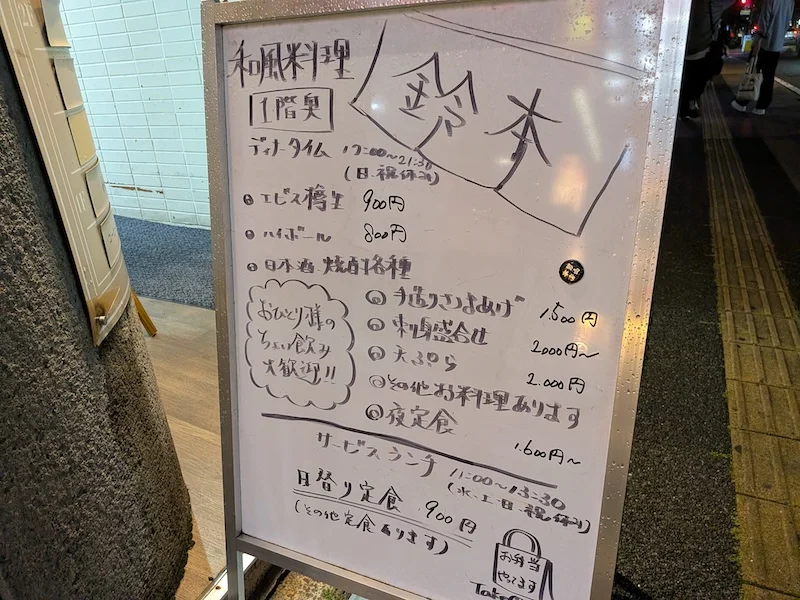 和風料理
鈴木
1階奥
ディナータイム 17:00〜21:30
(日、祝休み)
エビス樽生 900円
ハイボール 800円
日本酒 焼酎各種
おひとり様の
ちょい飲み
大歓迎!!
手造りさつまあげ 1,500円
刺身盛合せ 2000円〜
天ぷら 2,000円
その他お料理あります
夜定食 1,600円〜
サービスランチ 11:00〜13:30
(水、土、日、祝休み)
日替り定食 900円
(その他定食あります)
お弁当
やってます